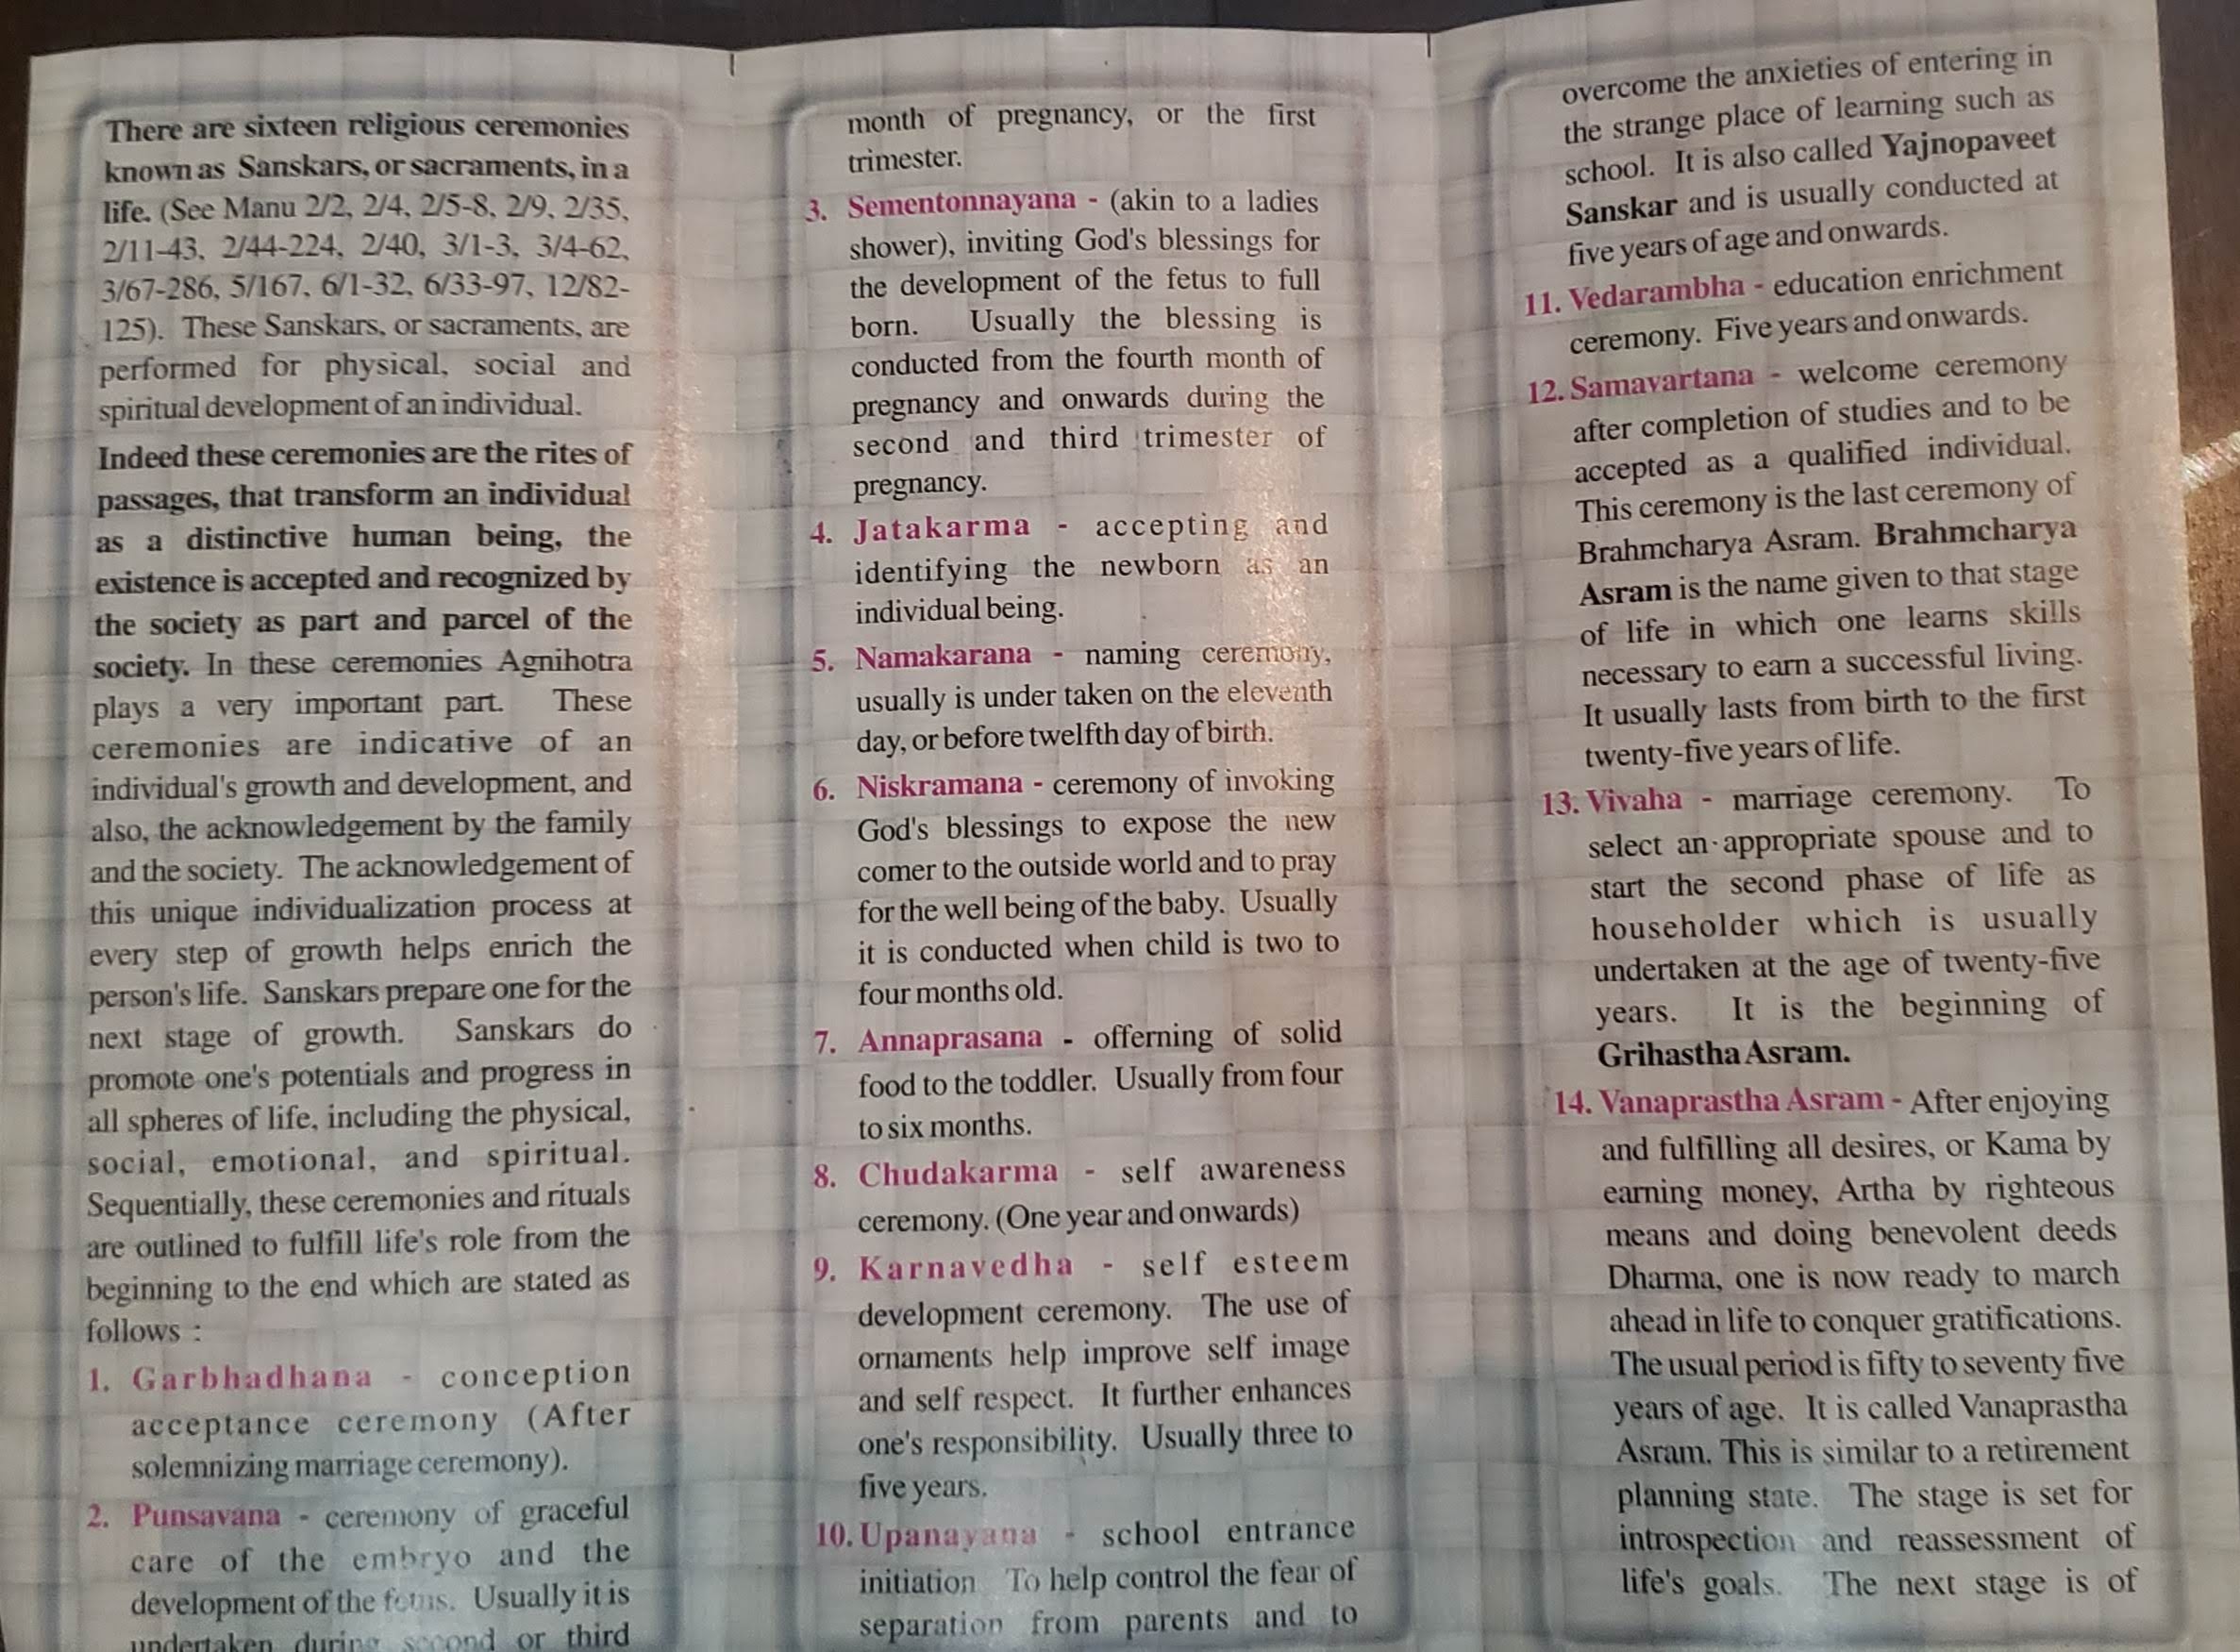 There are sixteen religious ceremonies
known as Sanskars, or sacraments, in a
life. (See Manu 2/2, 2/4, 2/5-8, 2/9, 2/35,
2/11-43, 2/44-224, 2/40, 3/1-3, 3/4-62,
3/67-286, 5/167, 6/1-32, 6/33-97, 12/82-
125). These Sanskars, or sacraments, are
performed for physical, social and
spiritual development of an individual.
Indeed these ceremonies are the rites of
passages, that transform an individual
as a distinctive human being, the
existence is accepted and recognized by
the society as part and parcel of the
society. In these ceremonies Agnihotra
plays a very important part. These
ceremonies are indicative of an
individual's growth and development, and
also, the acknowledgement by the family
and the society. The acknowledgement of
this unique individualization process at
every step of growth helps enrich the
person's life. Sanskars prepare one for the
next stage of growth. Sanskars do
promote one's potentials and progress in
all spheres of life, including the physical,
social, emotional, and spiritual.
Sequentially, these ceremonies and rituals
are outlined to fulfill life's role from the
beginning to the end which are stated as
follows :
1. Garbhadhana - conception
acceptance ceremony (After
solemnizing marriage ceremony).
2. Punsavana - ceremony of graceful
care of the embryo and the
development of the fetus. Usually it is
undertaken during second or third
month of pregnancy, or the first
trimester.
3. Sementonnayana - (akin to a ladies
shower), inviting God's blessings for
the development of the fetus to full
born. Usually the blessing is
conducted from the fourth month of
pregnancy and onwards during the
second and third trimester of
pregnancy.
4. Jatakarma - accepting and
identifying the newborn as an
individual being.
5. Namakarana - naming ceremony,
usually is under taken on the eleventh
day, or before twelfth day of birth.
6. Niskramana - ceremony of invoking
God's blessings to expose the new
comer to the outside world and to pray
for the well being of the baby. Usually
it is conducted when child is two to
four months old.
7. Annaprasana - offerning of solid
food to the toddler. Usually from four
to six months.
8. Chudakarma - self awareness
ceremony. (One year and onwards)
9. Karnavedha - self esteem
development ceremony. The use of
ornaments help improve self image
and self respect. It further enhances
one's responsibility. Usually three to
five years.
10. Upanayana - school entrance
initiation To help control the fear of
separation from parents and to
overcome the anxieties of entering in
the strange place of learning such as
school. It is also called Yajnopaveet
Sanskar and is usually conducted at
five years of age and onwards.
11. Vedarambha - education enrichment
ceremony. Five years and onwards.
12. Samavartana - welcome ceremony
after completion of studies and to be
accepted as a qualified individual.
This ceremony is the last ceremony of
Brahmcharya Asram. Brahmcharya
Asram is the name given to that stage
of life in which one learns skills
necessary to earn a successful living.
It usually lasts from birth to the first
twenty-five years of life.
13. Vivaha - marriage ceremony. To
select an appropriate spouse and to
start the second phase of life as
householder which is usually
undertaken at the age of twenty-five
years. It is the beginning of
Grihastha Asram.
14. Vanaprastha Asram - After enjoying
and fulfilling all desires, or Kama by
earning money, Artha by righteous
means and doing benevolent deeds
Dharma, one is now ready to march
ahead in life to conquer gratifications.
The usual period is fifty to seventy five
years of age. It is called Vanaprastha
Asram. This is similar to a retirement
planning state. The stage is set for
introspection and reassessment of
life's goals. The next stage is of